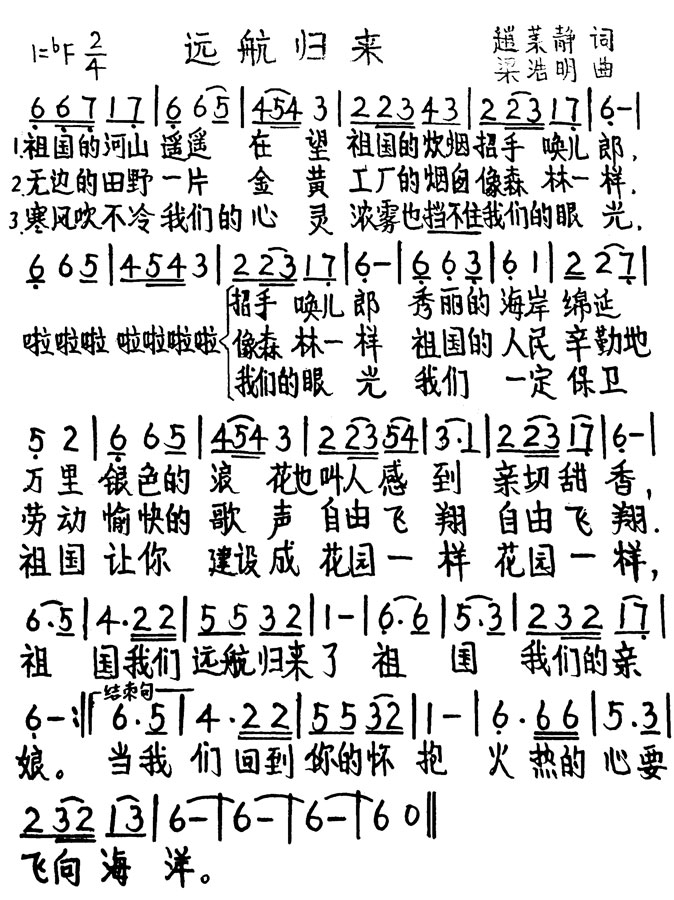 1=♭F 2/4 远航归来 趙菉静 词
梁浩明 曲
6 6 7 1 7 | 6 6 5 | 4 5 4 3 | 2 2 3 4 3 | 2 2 3 1 7 | 6 - |
1.祖国的河山 遥遥 在 望 祖国的炊烟招手 唤儿 郎,
2.无边的田野一片 金 黄 工厂的烟囱像森 林一 样.
3.寒风吹不冷我们的心 灵 浓雾也挡不住我们的眼 光,
6 6 5 | 4 5 4 3 | 2 2 3 1 7 | 6 - | 6 6 3 | 6 1 | 2 2 7 |
招手 唤儿 郎 秀丽的 海岸 绵延
啦啦啦 啦啦啦啦 像森 林一 样 祖国的 人民 辛勤地
我们的眼 光 我们 一定 保卫
5 2 | 6 6 5 | 4 5 4 3 | 2 2 3 5 4 | 3 . 1 | 2 2 3 1 7 | 6 - |
万里 银色的 浪 花也叫人感 到 亲切甜 香,
劳动 愉快的 歌 声 自由飞 翔 自由飞 翔.
祖国 让你 建设成 花园一 样 花园一 样,
6 . 5 | 4 . 2 2 | 5 5 3 2 | 1 - | 6 . 6 | 5 . 3 | 2 3 2 1 7 |
祖 国我们 远航归来了 祖 国 我们的亲
结束句
6 - :‖ 6 . 5 | 4 . 2 2 | 5 5 3 2 | 1 - | 6 . 6 6 | 5 . 3 |
娘。 当我 们 回到 你的怀 抱 火 热的 心要
2 3 2 1 3 | 6 - | 6 - | 6 - | 6 0 ‖
飞向 海 洋。